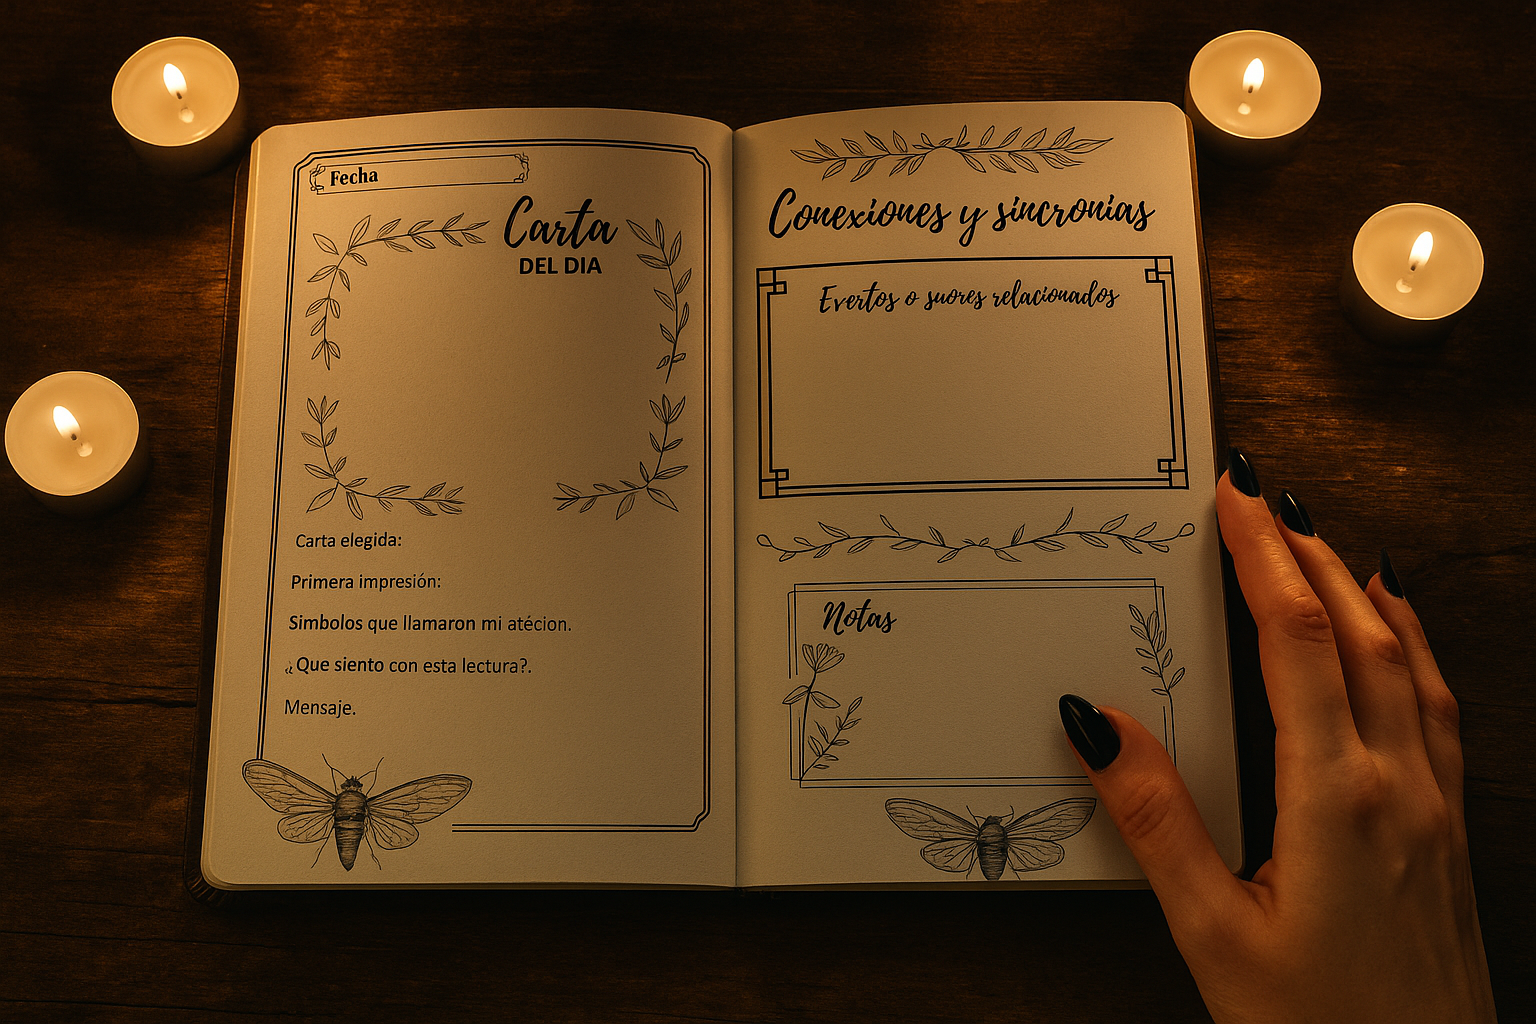 Fecha
Carta
DEL DIA
Carta elegida:
Primera impresión:
Simbolos que llamaron mi atécion.
¿Que siento con esta lectura?.
Mensaje.
Conexiones y sincronias
Evertos o suores relacionados
Notas